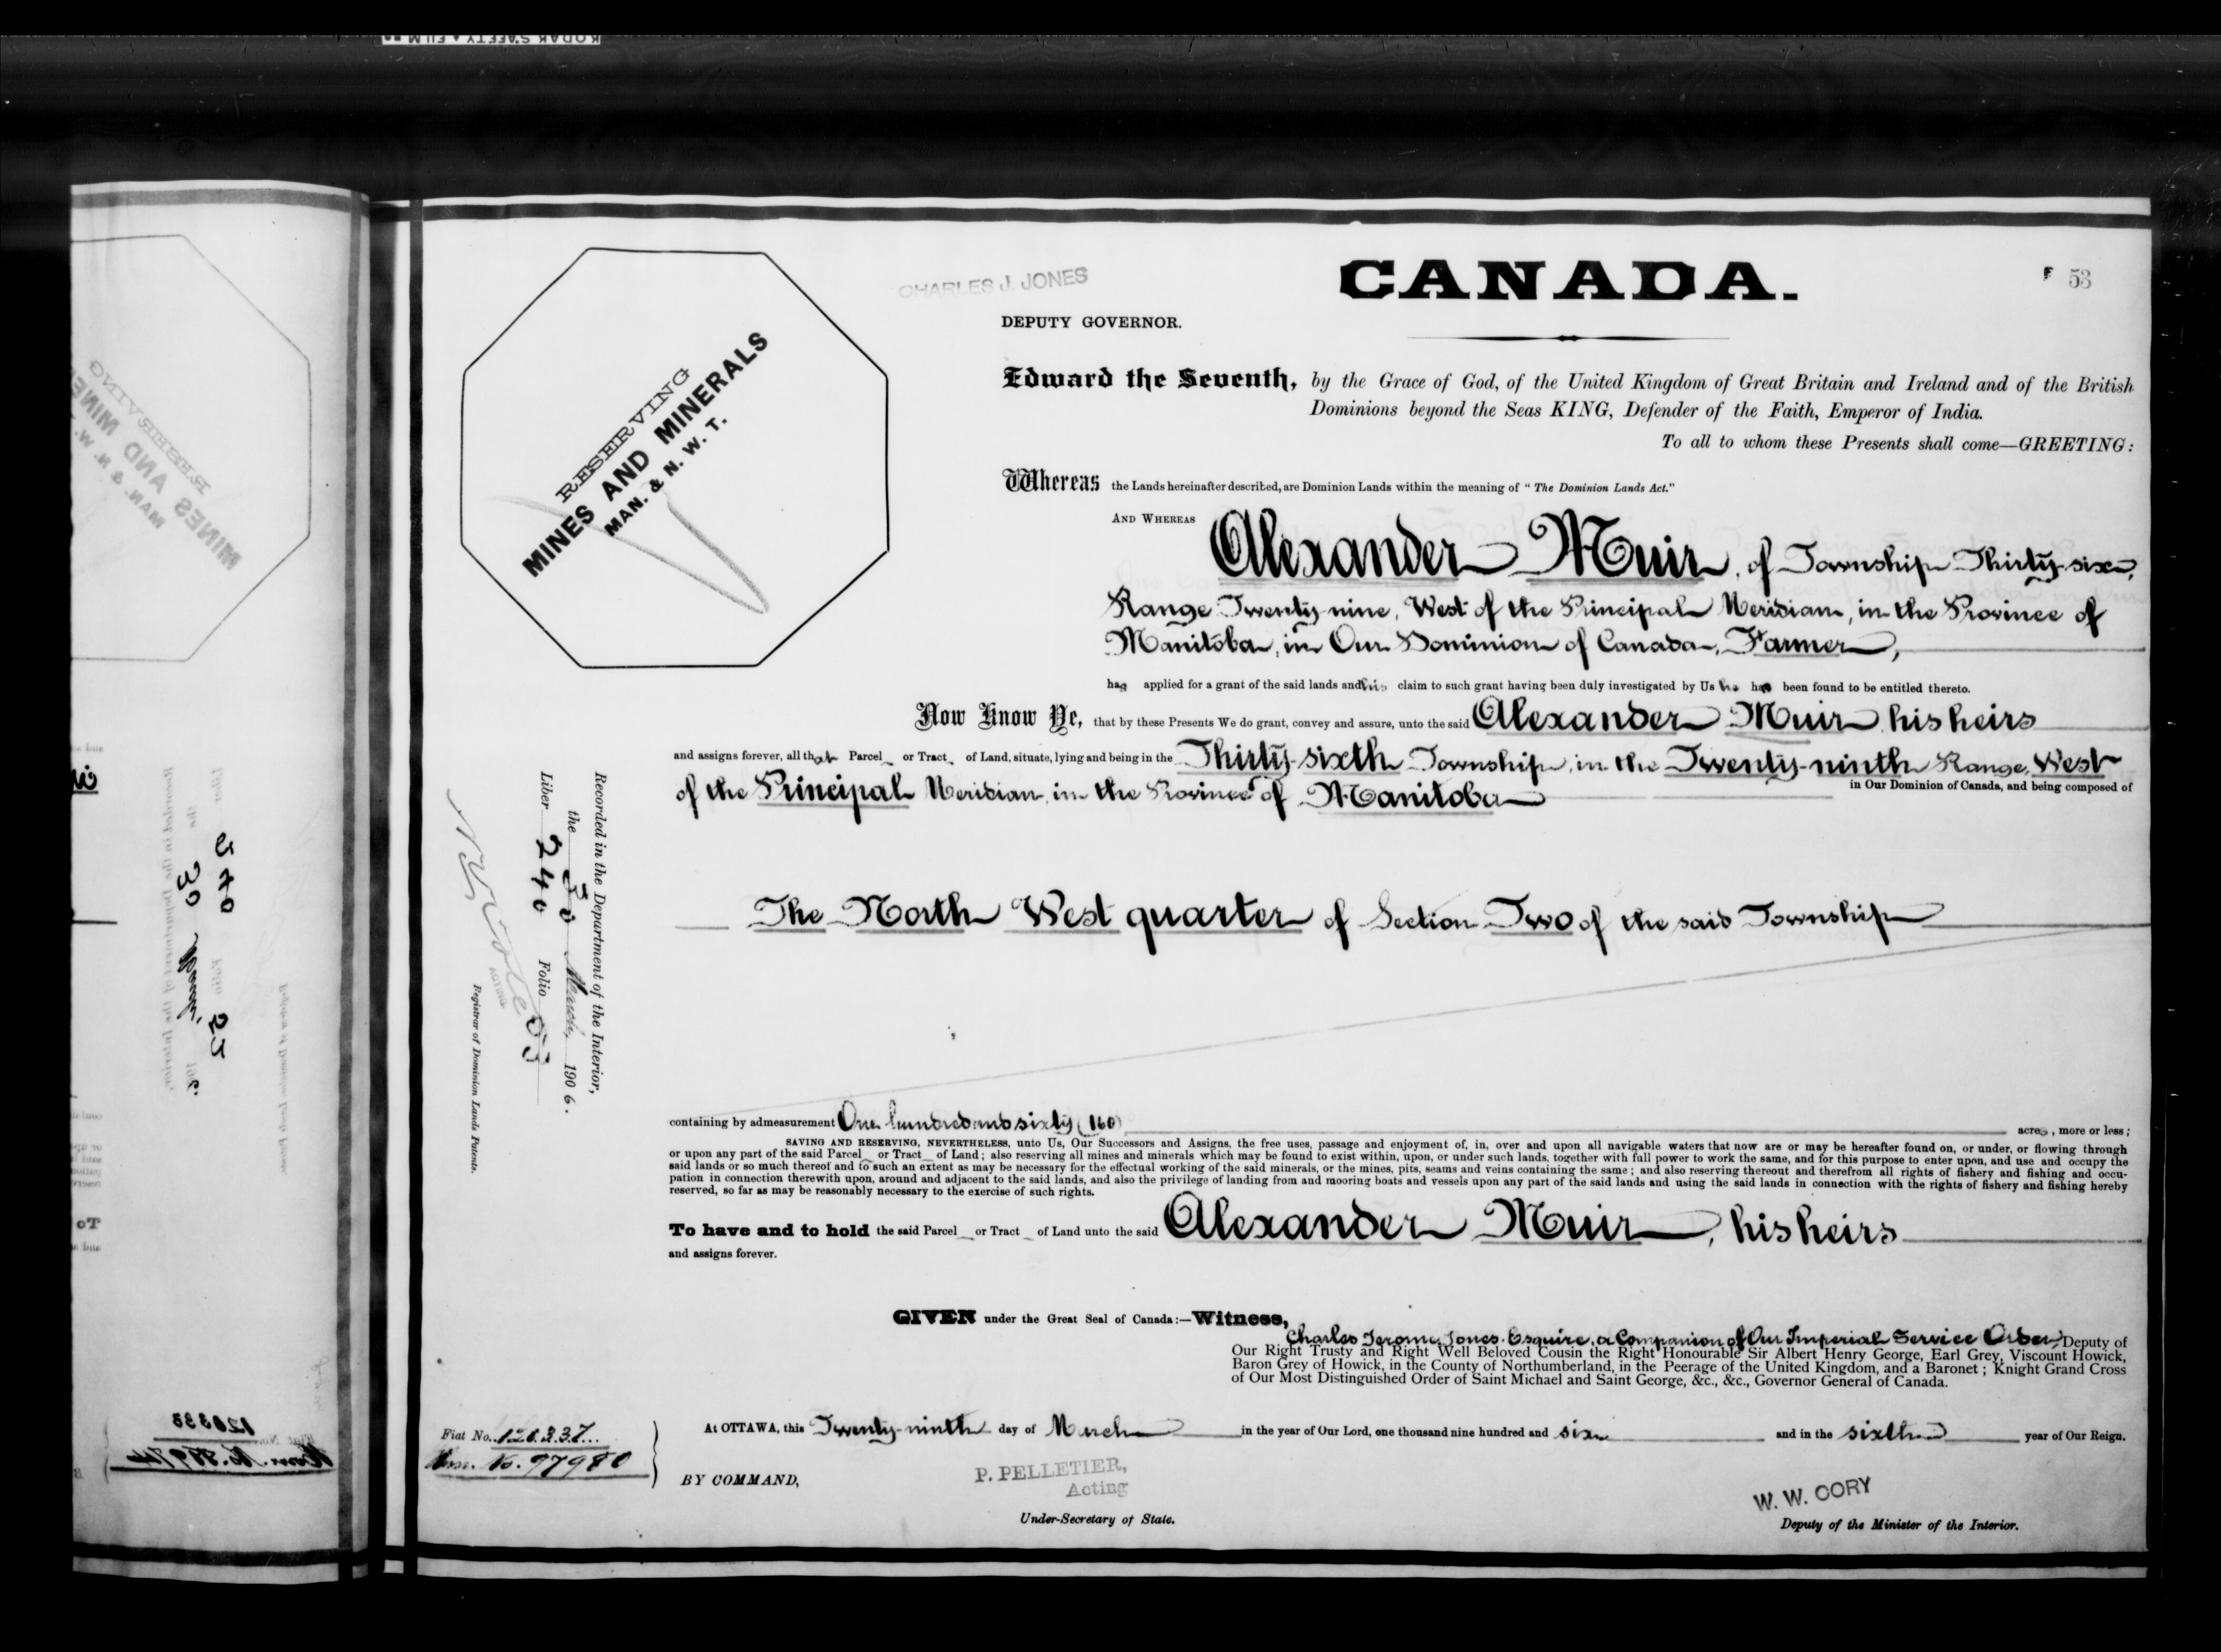 KODAK SAFETY FILM
CHARLES J. JONES
CANADA.
53
DEPUTY GOVERNOR.
RESERVING
MINES AND MINERALS
MAN. & N. W. T.
Edward the Seventh, by the Grace of God, of the United Kingdom of Great Britain and Ireland and of the British
Dominions beyond the Seas KING, Defender of the Faith, Emperor of India.
To all to whom these Presents shall come—GREETING:
Whereas the Lands hereinafter described, are Dominion Lands within the meaning of "The Dominion Lands Act."
AND WHEREAS Alexander Muir, of Township Thirty-six,
Range Twenty-nine, West of the Principal Meridian, in the Province of
Manitoba, in Our Dominion of Canada, Farmer,
has applied for a grant of the said lands and his claim to such grant having been duly investigated by Us he has been found to be entitled thereto.
Now Know Ye, that by these Presents We do grant, convey and assure, unto the said Alexander Muir, his heirs
and assigns forever, all that Parcel or Tract of Land, situate, lying and being in the Thirty-sixth Township, in the Twenty-ninth Range, West
of the Principal Meridian, in the Province of Manitoba in Our Dominion of Canada, and being composed of
The North West quarter of Section Two of the said Township
Recorded in the Department of the Interior,
the 30 March, 1906.
Liber 240 Folio 53
ACTING
Registrar of Dominion Lands Patents.
containing by admeasurement One hundred and sixty (160) acres, more or less;
SAVING AND RESERVING, NEVERTHELESS, unto Us, Our Successors and Assigns, the free uses, passage and enjoyment of, in, over and upon all navigable waters that now are or may be hereafter found on, or under, or flowing through
or upon any part of the said Parcel or Tract of Land; also reserving all mines and minerals which may be found to exist within, upon, or under such lands, together with full power to work the same, and for this purpose to enter upon, and use and occupy the
said lands or so much thereof and to such an extent as may be necessary for the effectual working of the said minerals, or the mines, pits, seams and veins containing the same; and also reserving thereout and therefrom all rights of fishery and fishing and occu-
pation in connection therewith upon, around and adjacent to the said lands, and also the privilege of landing from and mooring boats and vessels upon any part of the said lands and using the said lands in connection with the rights of fishery and fishing hereby
reserved, so far as may be reasonably necessary to the exercise of such rights.
To have and to hold the said Parcel or Tract of Land unto the said Alexander Muir, his heirs
and assigns forever.
GIVEN under the Great Seal of Canada:—Witness,
Charles Jerome Jones, Esquire, a Companion of Our Imperial Service Order, Deputy of
Our Right Trusty and Right Well Beloved Cousin the Right Honourable Sir Albert Henry George, Earl Grey, Viscount Howick,
Baron Grey of Howick, in the County of Northumberland, in the Peerage of the United Kingdom, and a Baronet; Knight Grand Cross
of Our Most Distinguished Order of Saint Michael and Saint George, &c., &c., Governor General of Canada.
At OTTAWA, this Twenty-ninth day of March in the year of Our Lord, one thousand nine hundred and six and in the sixth year of Our Reign.
Fiat No. 126337
No. 97980
BY COMMAND,
P. PELLETIER,
Acting
Under-Secretary of State.
W. W. CORY
Deputy of the Minister of the Interior.